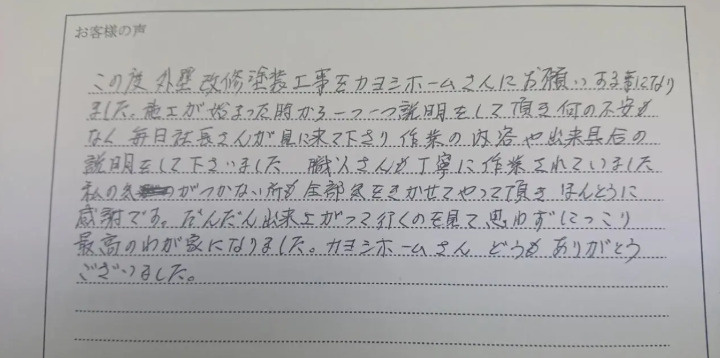 お客様の声
この度 外壁改修塗装工事をカヨシホームさんにお願いする事になり
ました。施工が始まった時から一つ一つ説明をして頂き何の不安も
なく 毎日社長さんが見に来て下さり 作業の内容や出来具合の
説明をして下さいました 職人さんも丁寧に作業されていました
私の気のがつかない所も全部気をきかせてやって頂き ほんとうに
感謝です。だんだん出来上がって行くのを見て思わずにっこり
最高のわが家になりました。カヨシホームさん どうも ありがとう
ございました。